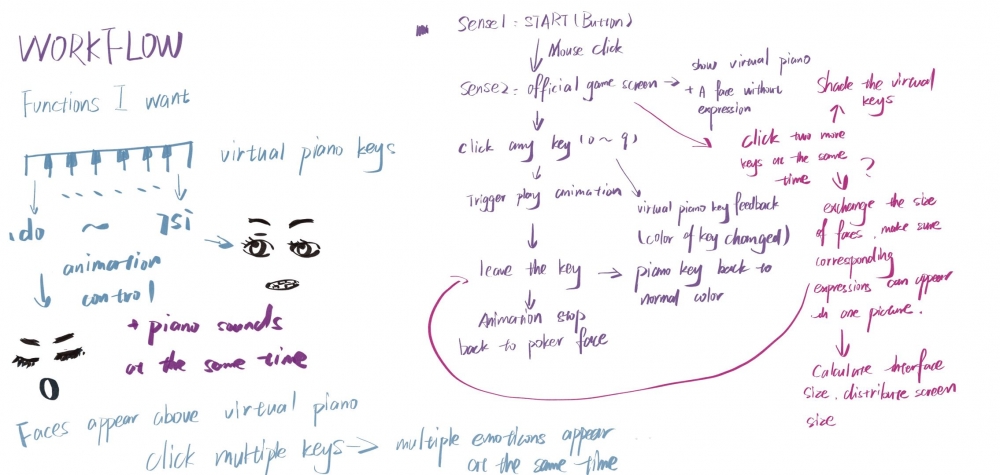 WORKFLOW
Functions I want
virtual piano keys
1do ~ 7si
animation
control
+ piano sounds
at the same time
Faces appear above virtual piano
click multiple keys → multiple emoticons appear
at the same time
Sense1: START (Button)
Mouse click
Sense2: official game screen →
show virtual piano
+ A face without
expression
click any key (0 ~ 9)
Trigger play animation
virtual piano key feedback
(color of key changed)
leave the key → piano key back to
normal color
Animation stop
back to poker face
Shade the virtual
keys
click two more
keys at the same
time
?
exchange the size
of faces, make sure
corresponding
expressions can appear
in one picture.
Calculate interface
size, distribute screen
size